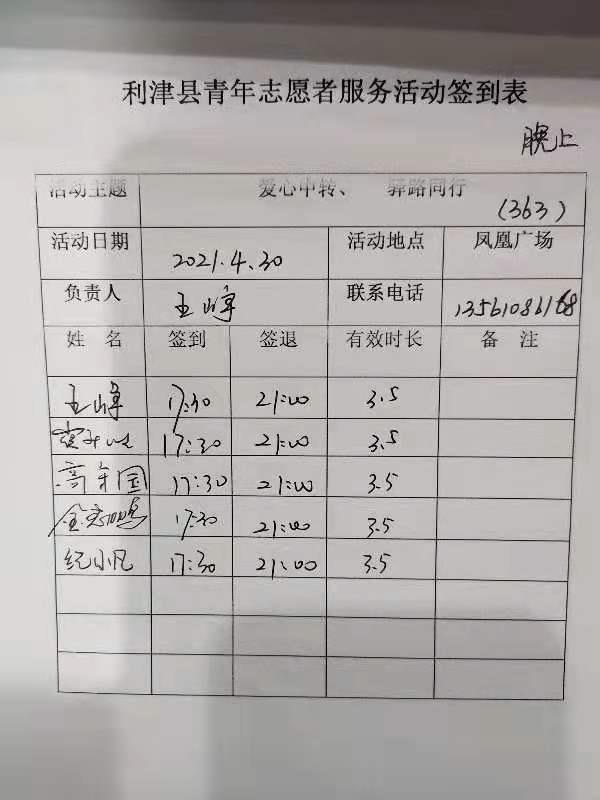 利津县青年志愿者服务活动签到表
晚上
活动主题 爱心中转、 驿路同行
(363)
活动日期 2021.4.30 活动地点 凤凰广场
负责人 王峰 联系电话
姓名 签到 签退 有效时长 备注
王峰 17:30 21:00 3.5
17:30 21:00 3.5
高年国 17:30 21:00 3.5
17:30 21:00 3.5
纪小凡 17:30 21:00 3.5